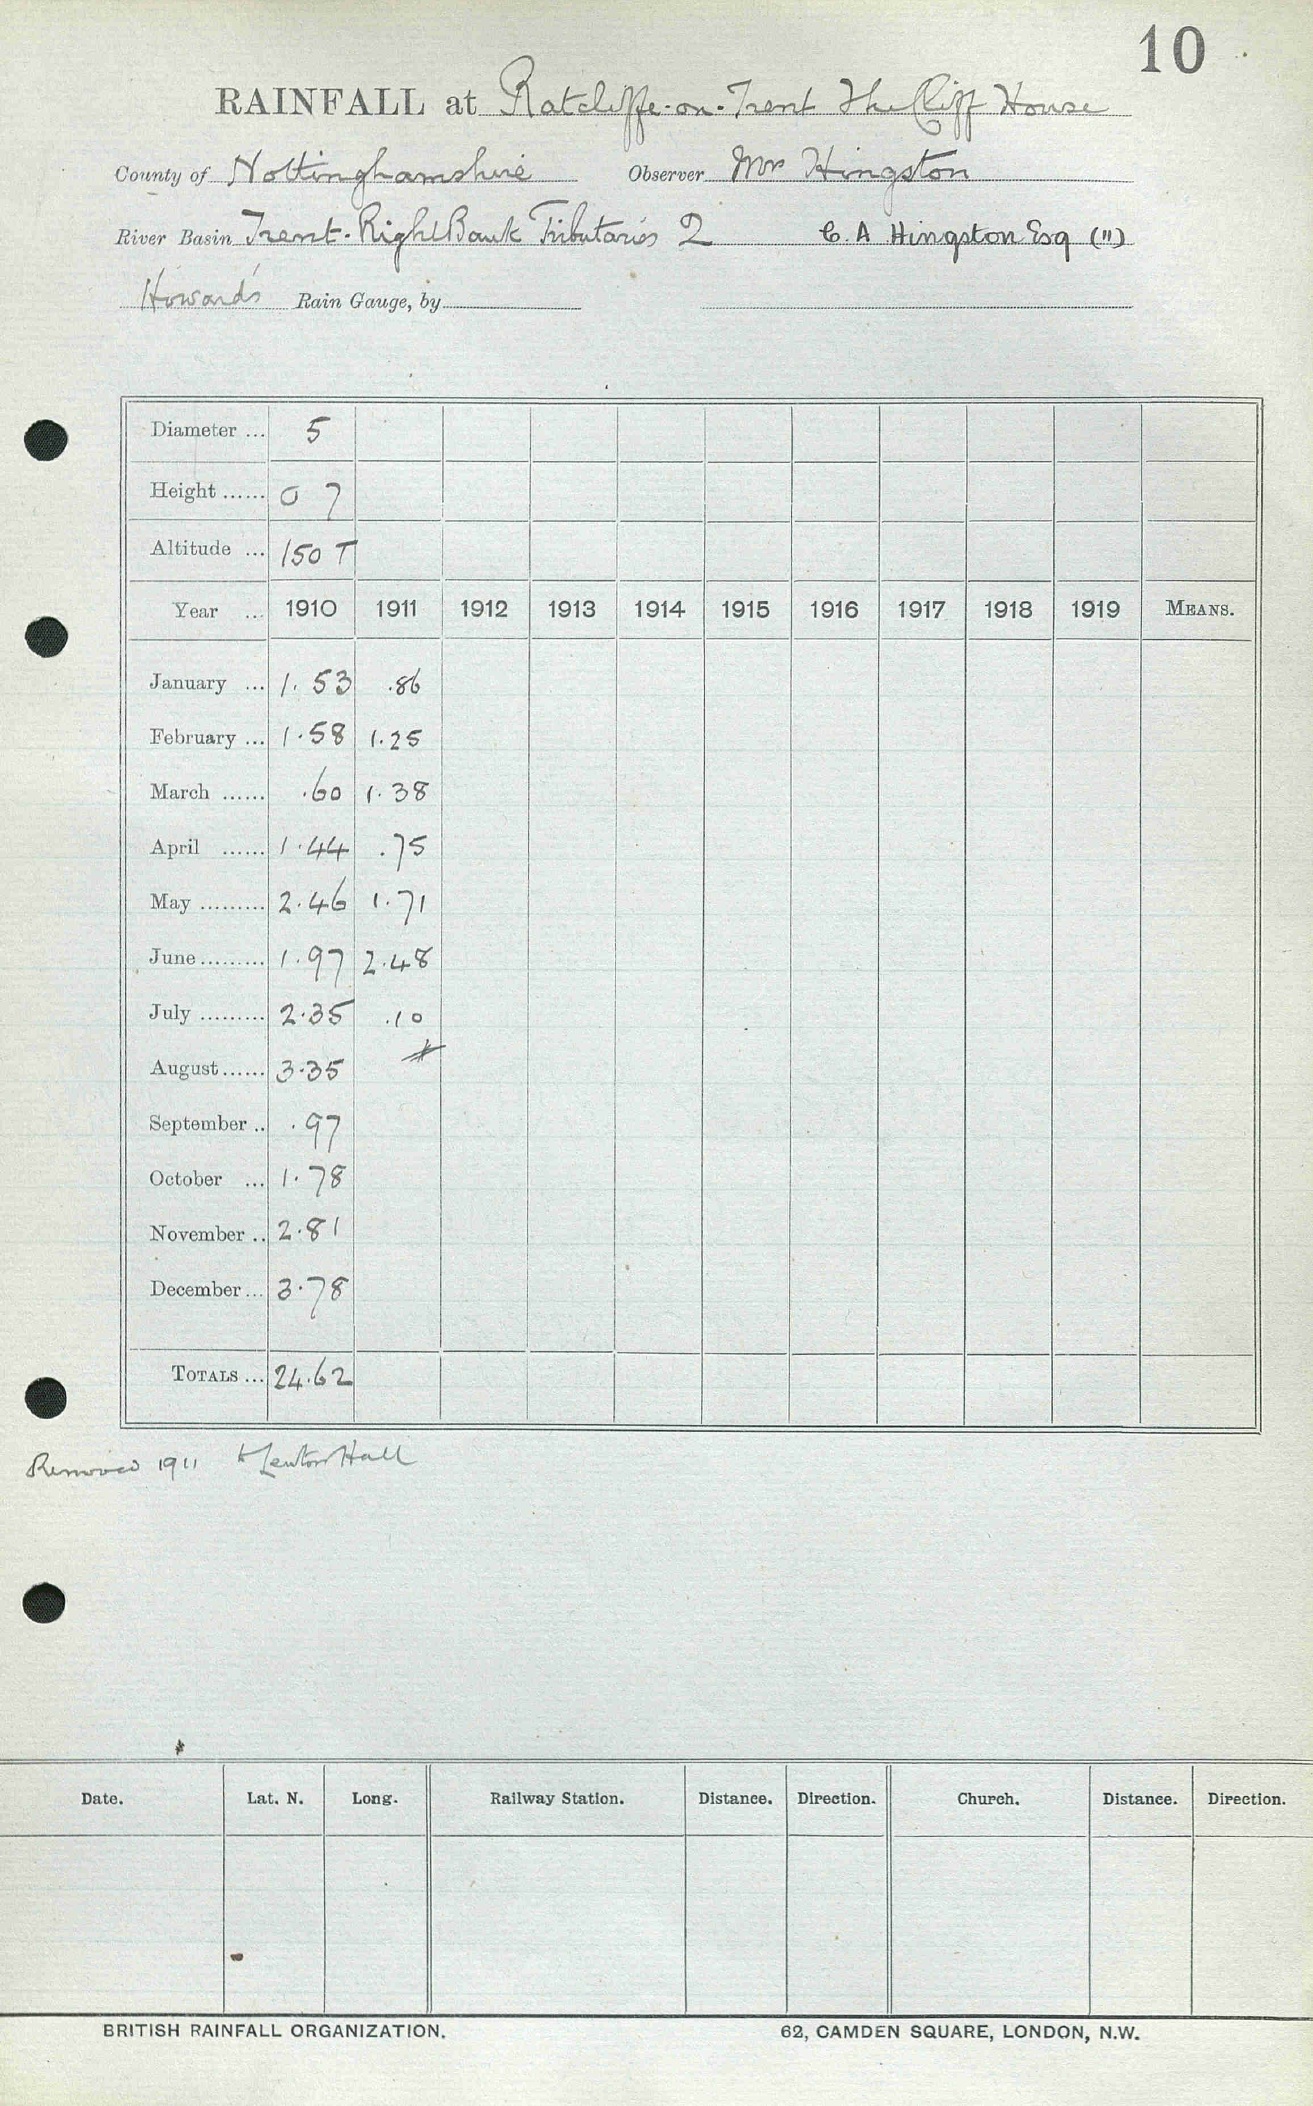 10
RAINFALL at Ratcliffe-on-Trent The Cliff House
County of Nottinghamshire Observer Mr Hingston
River Basin Trent-Right Bank Tributaries 2 C. A Hingston Esq (")
Howards Rain Gauge, by
Diameter ... 5
Height ...... 0 7
Altitude ... 150 T
Year ... 1910 1911 1912 1913 1914 1915 1916 1917 1918 1919 MEANS.
January ... 1.53 .86
February ... 1.58 1.25
March ...... .60 1.38
April ...... 1.44 .75
May ......... 2.46 1.71
June ......... 1.97 2.48
July ......... 2.35 .10
August ...... 3.35
September .. .97
October ... 1.78
November .. 2.81
December ... 3.78
TOTALS ... 24.62
Removed 1911 to Lenton Hall
Date. Lat. N. Long. Railway Station. Distance. Direction. Church. Distance. Direction.
BRITISH RAINFALL ORGANIZATION. 62, CAMDEN SQUARE, LONDON, N.W.